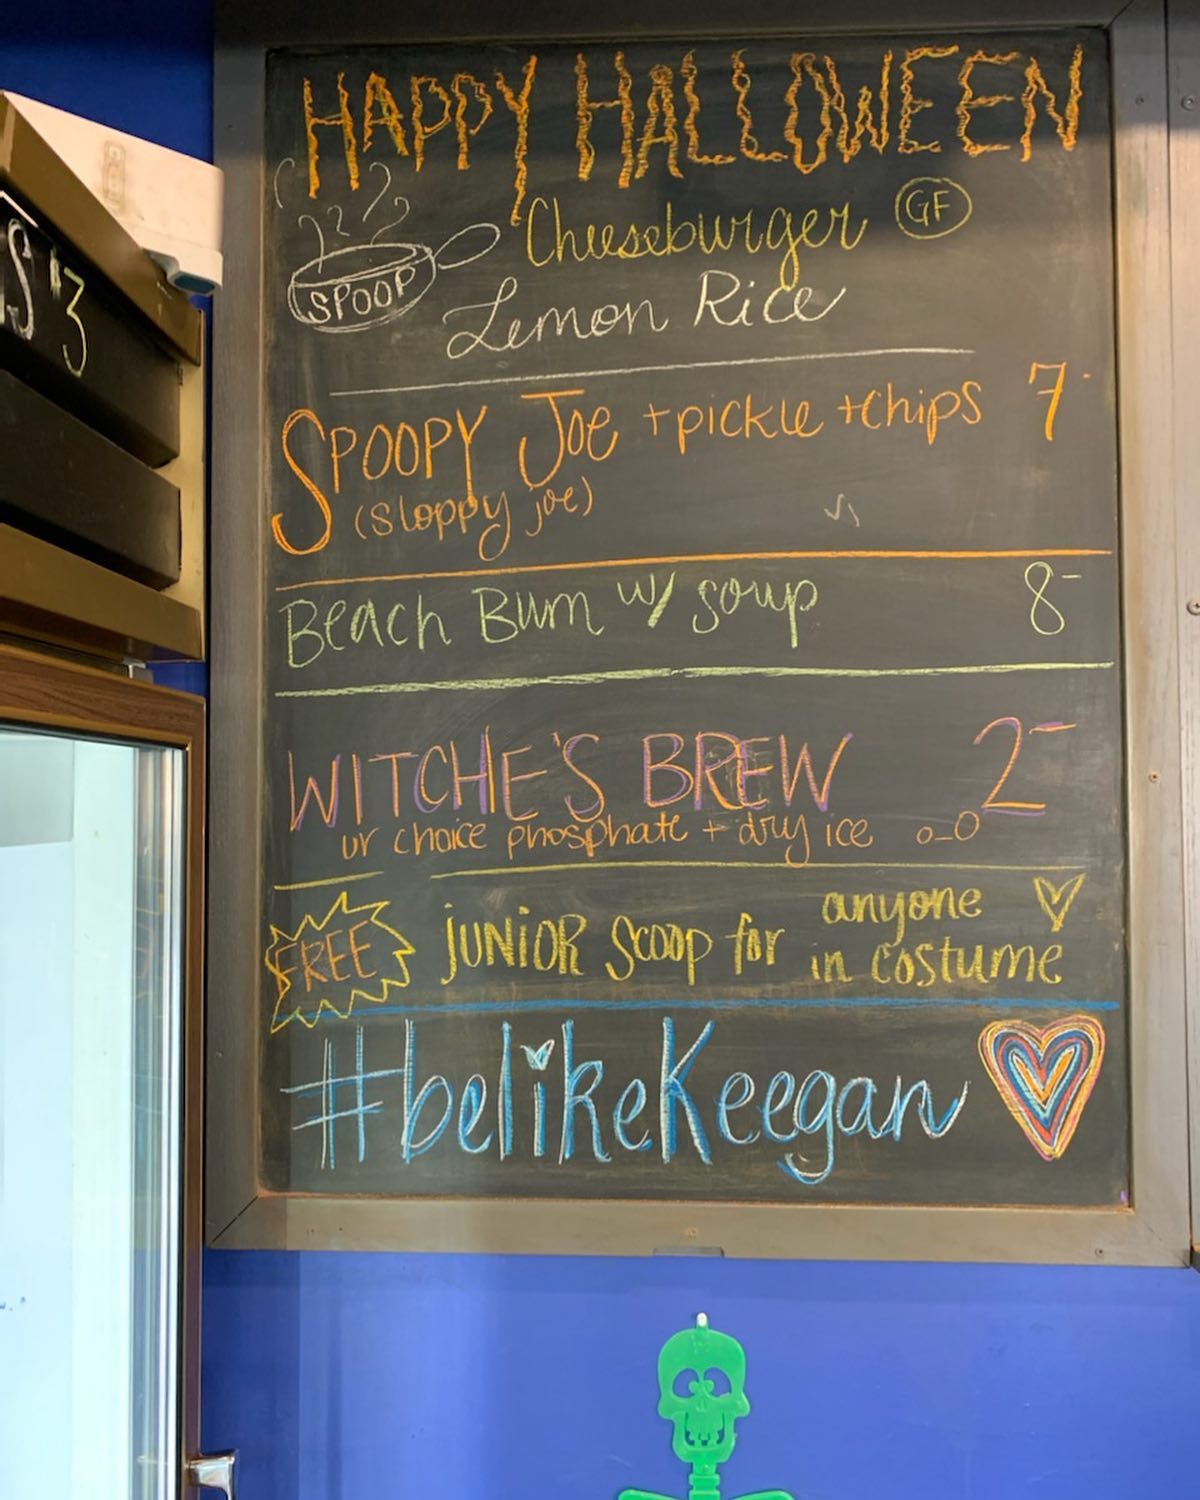 HAPPY HALLOWEEN
SPOOP
Cheeseburger GF
Lemon Rice
$3
SPOOPY JOE +pickle +chips 7-
(Sloppy joe)
BEACH BUM w/ soup 8-
WITCHE'S BREW 2-
ur choice phosphate + dry ice o_O
FREE JUNIOR SCOOP for anyone
in costume
#belikeKeegan